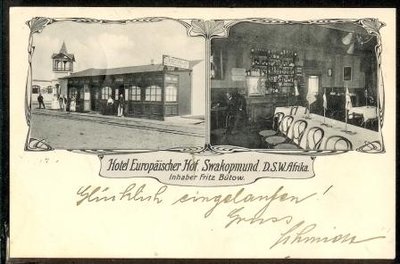 Hotel Europäischer Hof, Swakopmund. D.S.W. Afrika.
Inhaber Fritz Bütow.
Glücklich eingelaufen!
Gruss